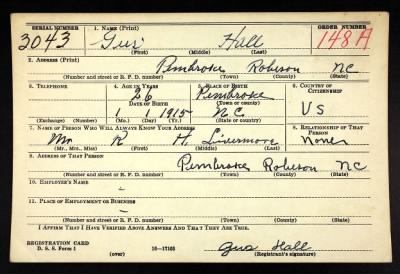 SERIAL NUMBER 1. NAME (Print) ORDER NUMBER
3043 Gus Hall 148A
(First) (Middle) (Last)
2. ADDRESS (Print)
Pembroke Robeson NC
(Number and street or R. F. D. number) (Town) (County) (State)
3. TELEPHONE 4. AGE IN YEARS 5. PLACE OF BIRTH 6. COUNTRY OF CITIZENSHIP
26 Pembroke
DATE OF BIRTH (Town or county)
1 1 1915 N.C. US
(Exchange) (Number) (Mo.) (Day) (Yr.) (State or country)
7. NAME OF PERSON WHO WILL ALWAYS KNOW YOUR ADDRESS 8. RELATIONSHIP OF THAT PERSON
Mr R H. Livermore None
(Mr., Mrs., Miss) (First) (Middle) (Last)
9. ADDRESS OF THAT PERSON
Pembroke Robeson NC
(Number and street or R. F. D. number) (Town) (County) (State)
10. EMPLOYER'S NAME
–
11. PLACE OF EMPLOYMENT OR BUSINESS
–
(Number and street or R. F. D. number) (Town) (County) (State)
I AFFIRM THAT I HAVE VERIFIED ABOVE ANSWERS AND THAT THEY ARE TRUE.
REGISTRATION CARD
D. S. S. Form 1 16—17105 Gus Hall
(over) (Registrant's signature)